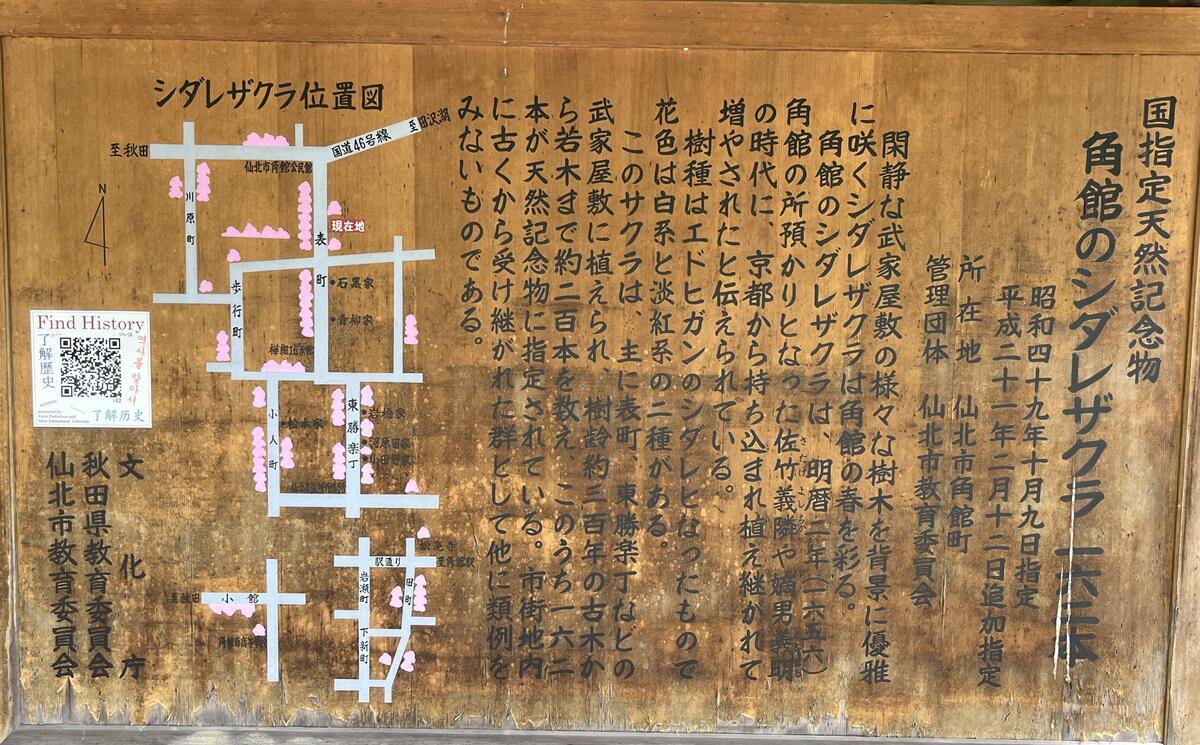 国指定天然記念物
角館のシダレザクラ 一六二本
昭和四十九年十月九日指定
平成二十一年二月十二日追加指定
所在地 仙北市角館町
管理団体 仙北市教育委員会
閑静な武家屋敷の様々な樹木を背景に優雅
に咲くシダレザクラは角館の春を彩る。
角館のシダレザクラは、明暦二年(一六五六)
角館の所預かりとなった佐竹義隣や嫡男義明
の時代に、京都から持ち込まれ植え継がれて
増やされたと伝えられている。
樹種はエドヒガンのシダレヒなったもので
花色は白系と淡紅系の二種がある。
このサクラは、主に表町、東勝楽丁などの
武家屋敷に植えられ、樹齢約三百年の古木か
ら若木まで約二百本を数え、このうち一六二
本が天然記念物に指定されている。市街地内
に古くから受け継がれた群として他に類例を
みないものである。
シダレザクラ位置図
至田沢湖
国道46号線
至秋田
仙北市角館公民館
川原町
N
現在地
表町
石黒家
歩行町
青柳家
樺細工伝承館
小人町
松本家
東勝楽丁
岩橋家
河原田家
小田野家
松庵寺
駅通り
至角館駅
岩瀬町
田町
下新町
至秋田
小館
Find History
了解歴史
역사를 찾아서
162
了解历史
文化庁
秋田県教育委員会
仙北市教育委員会